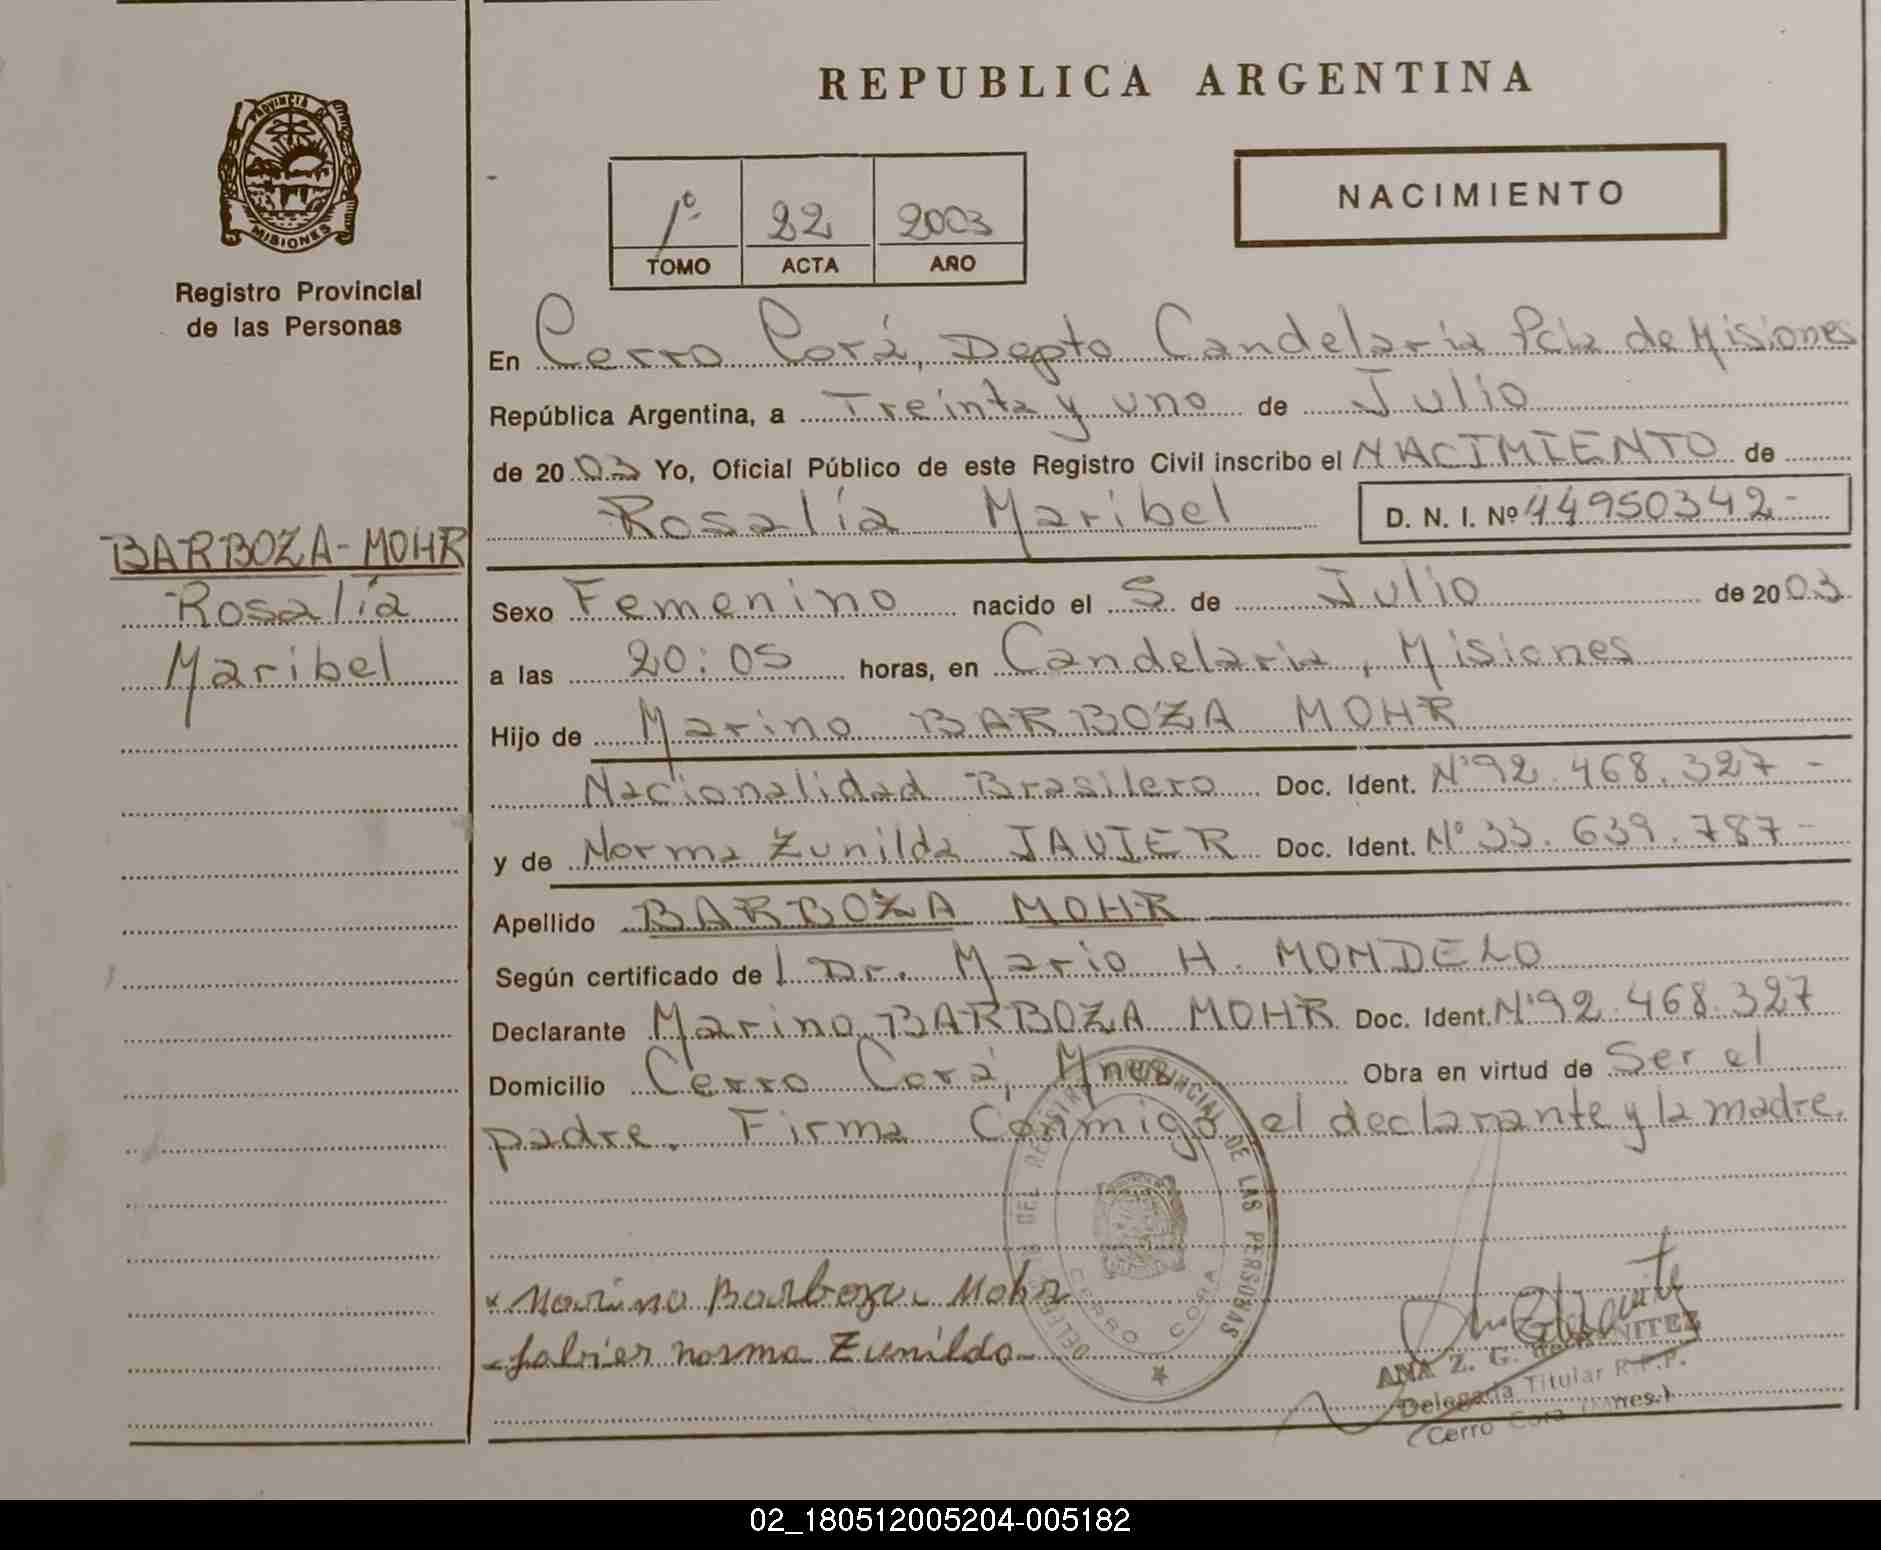 REPUBLICA ARGENTINA
PROVINCIA DE
MISIONES
Registro Provincial
de las Personas
1º 22 2003
TOMO ACTA AÑO
NACIMIENTO
En Cerro Corá, Depto Candelaria Pcia de Misiones
República Argentina, a Treinta y uno de Julio
de 2003 Yo, Oficial Público de este Registro Civil inscribo el NACIMIENTO de
Rosalía Maribel D. N. I. Nº 44950342-
BARBOZA-MOHR
Rosalía
Maribel
Sexo Femenino nacido el 5 de Julio de 2003
a las 20:05 horas, en Candelaria, Misiones
Hijo de Marino BARBOZA MOHR
Nacionalidad Brasilero Doc. Ident. Nº92.468.327-
y de Norma Zunilda JAVIER Doc. Ident. Nº 33.639.787-
Apellido BARBOZA MOHR
Según certificado de l Dr. Mario H. MONDELO
Declarante Marino BARBOZA MOHR Doc. Ident. Nº92.468.327
Domicilio Cerro Corá, Mnes Obra en virtud de Ser el
padre. Firma Conmigo el declarante y la madre.
DEL REGISTRO PROVINCIAL DE LAS PERSONAS
CERRO CORA
x Marino Barboza Mohr
Javier norma Zunilda
ANA Z. G. de BENITEZ
Delegada Titular R.P.P.
Cerro Cora (Mnes.)
02_180512005204-005182